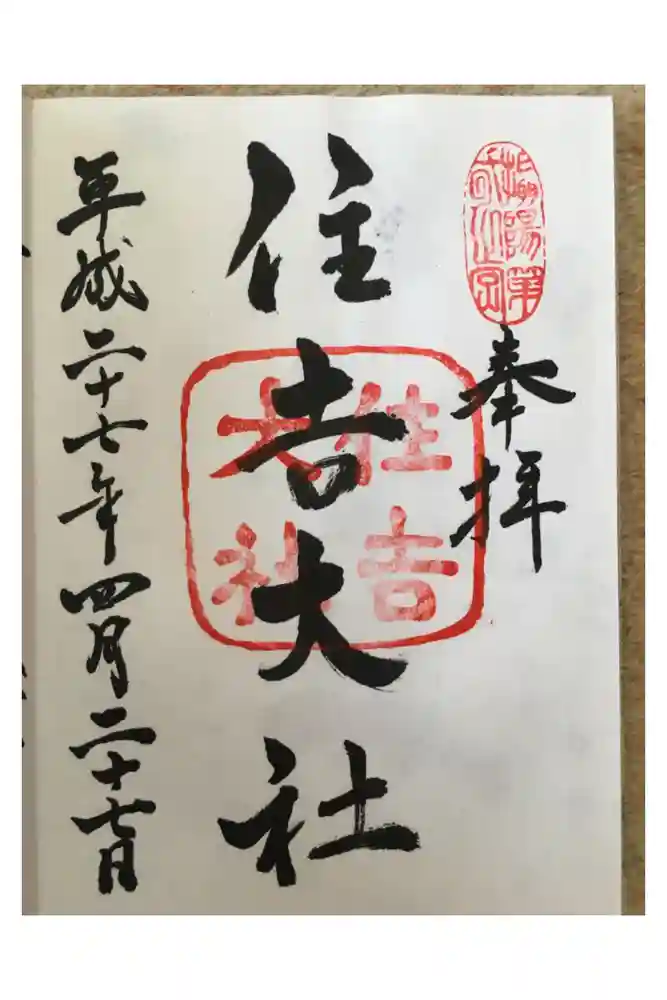 奉拝
住吉大社
住吉
大社
平成二十七年四月二十七日